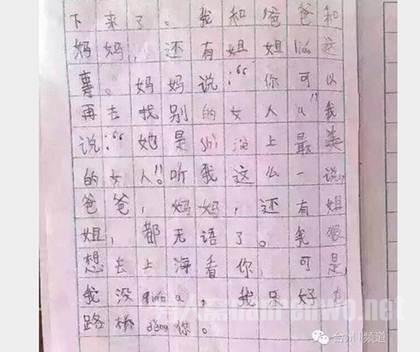 下来了。我和爸爸和
妈妈，还有姐姐 这
薯。妈妈说：“你可以
再去找别的女人”我
说：“她是shi 上最美
的女人！”听我这么一说，
爸爸，妈妈，还有姐
姐，都无语了。我很
想去上海看你，可是
我没qian a，我只好在
路桥 你。
台州频道